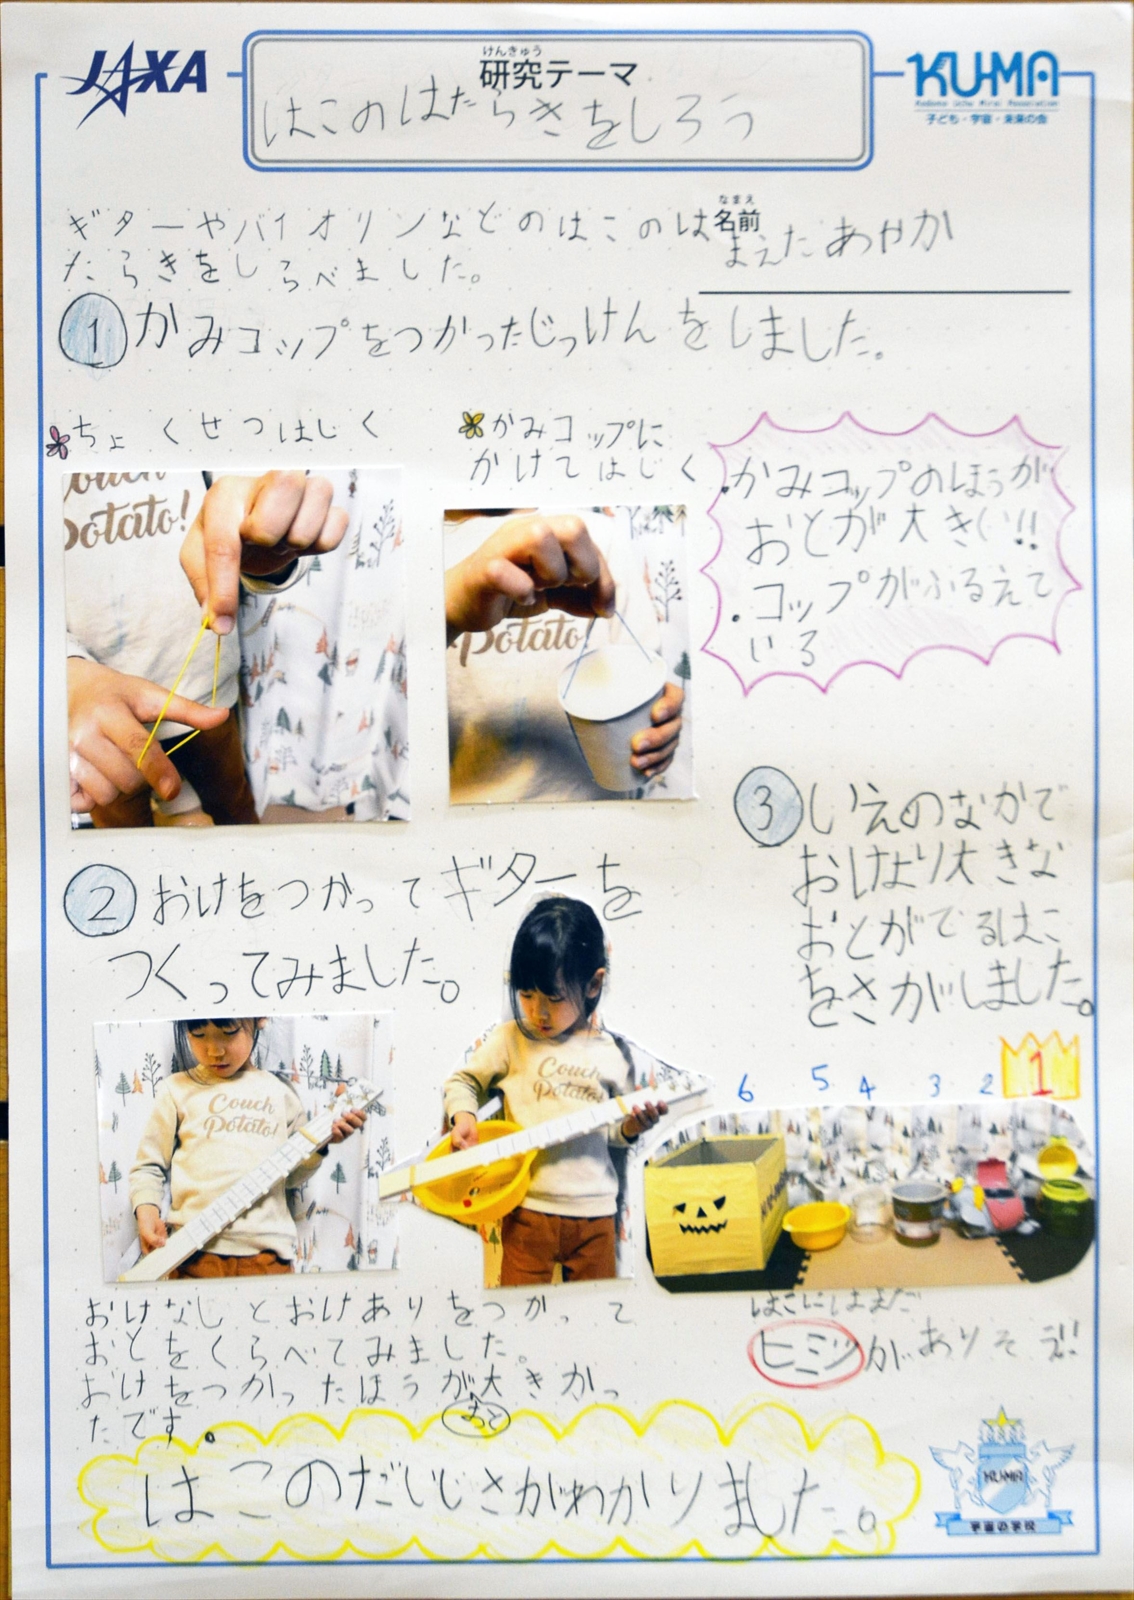 JAXA
けんきゅう
研究テーマ
KU-MA
Kodomo Uchu Mirai Association
子ども・宇宙・未来の会
はこのはたらきをしろう
ギターやバイオリンなどのはこのは
たらきをしらべました。
なまえ
名前
まえた あやか
1 かみコップをつかったじっけんをしました。
ちょくせつはじく
かみコップに
かけてはじく
・かみコップのほうが
おとが大きい!!
・コップがふるえて
いる
Couch
Potato!
Potato!
2 おけをつかってギターを
つくってみました。
3 いえのなかで
おけより大きな
おとがでるはこ
をさがしました。
Couch
Potato!
Couch
Potato!
6 5 4 3 2 1
おけなしとおけありをつかって
おとをくらべてみました。
おけをつかったほうが大きかっ
おと
たです。
はこにはまだ
ヒミツがありそえ!!
はこのだいじさがわかりました。
KU-MA
宇宙の学校